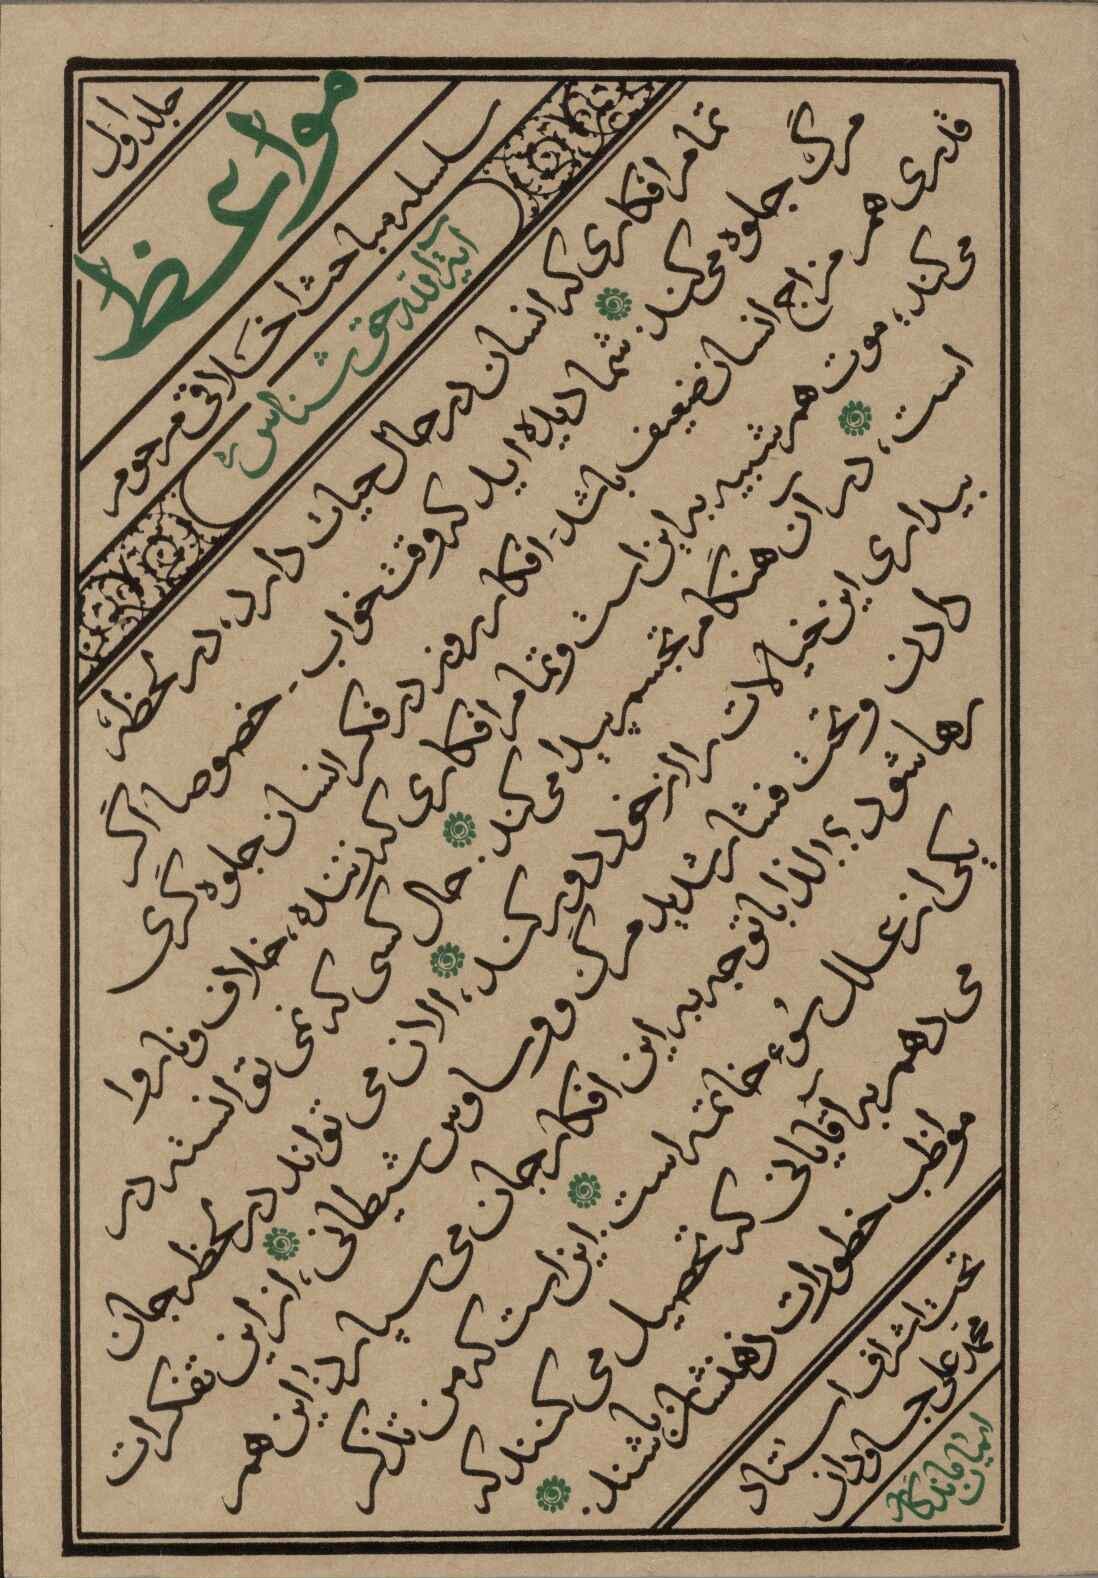 جلد اول
مواعظ
سلسله مباحث اخلاقی مرحوم
آیة الله حق شناس
تمام افکاری که انسان در حال حیات دارد، در لحظهٔ
مرگ جلوه می کند. شما دیده اید که وقت خواب - خصوصاً اگر
قدری هم مزاج انسان ضعیف باشد - افکار روز در فکر انسان جلوه گری
می کند؛ موت هم شبیه به این است و تمام افکاری که زننده، خلاف و ناروا
است، در آن هنگام تجسم پیدا می کند. حال کسی که نمی توانسته در
بیداری این خیالات را از خود دور کند، الان می تواند در لحظه جان
دادن و تحت فشار شدید مرگ و وساوس شیطانی، از این تفکرات
رها شود؟! لذا با توجه به این افکار جان می سپارد. این هم
یکی از علل سُوء خاتمه است. این است که من تذکر
می دهم به آقایانی که تحصیل می کنند که
مواظب خطورات ذهنشان باشند.
تحت اشراف استاد
محمد علی جاودان